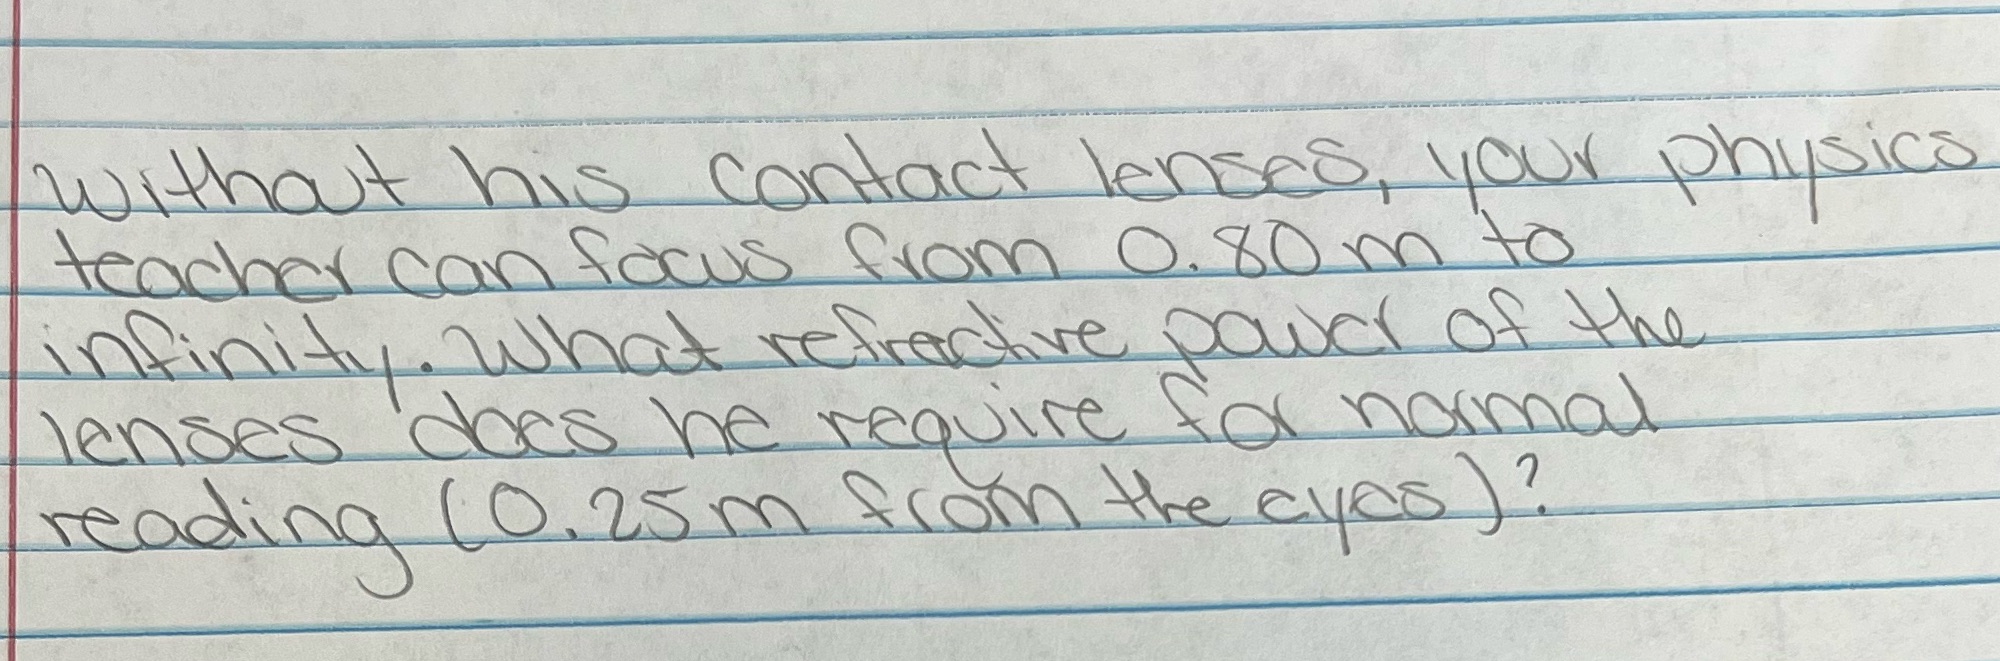 Without his contact lenses, your physics
teacher can focus from 0.80 m to
infinity. What refractive power of the
lenses does he require for normal
reading (0.25 m from the eyes)?